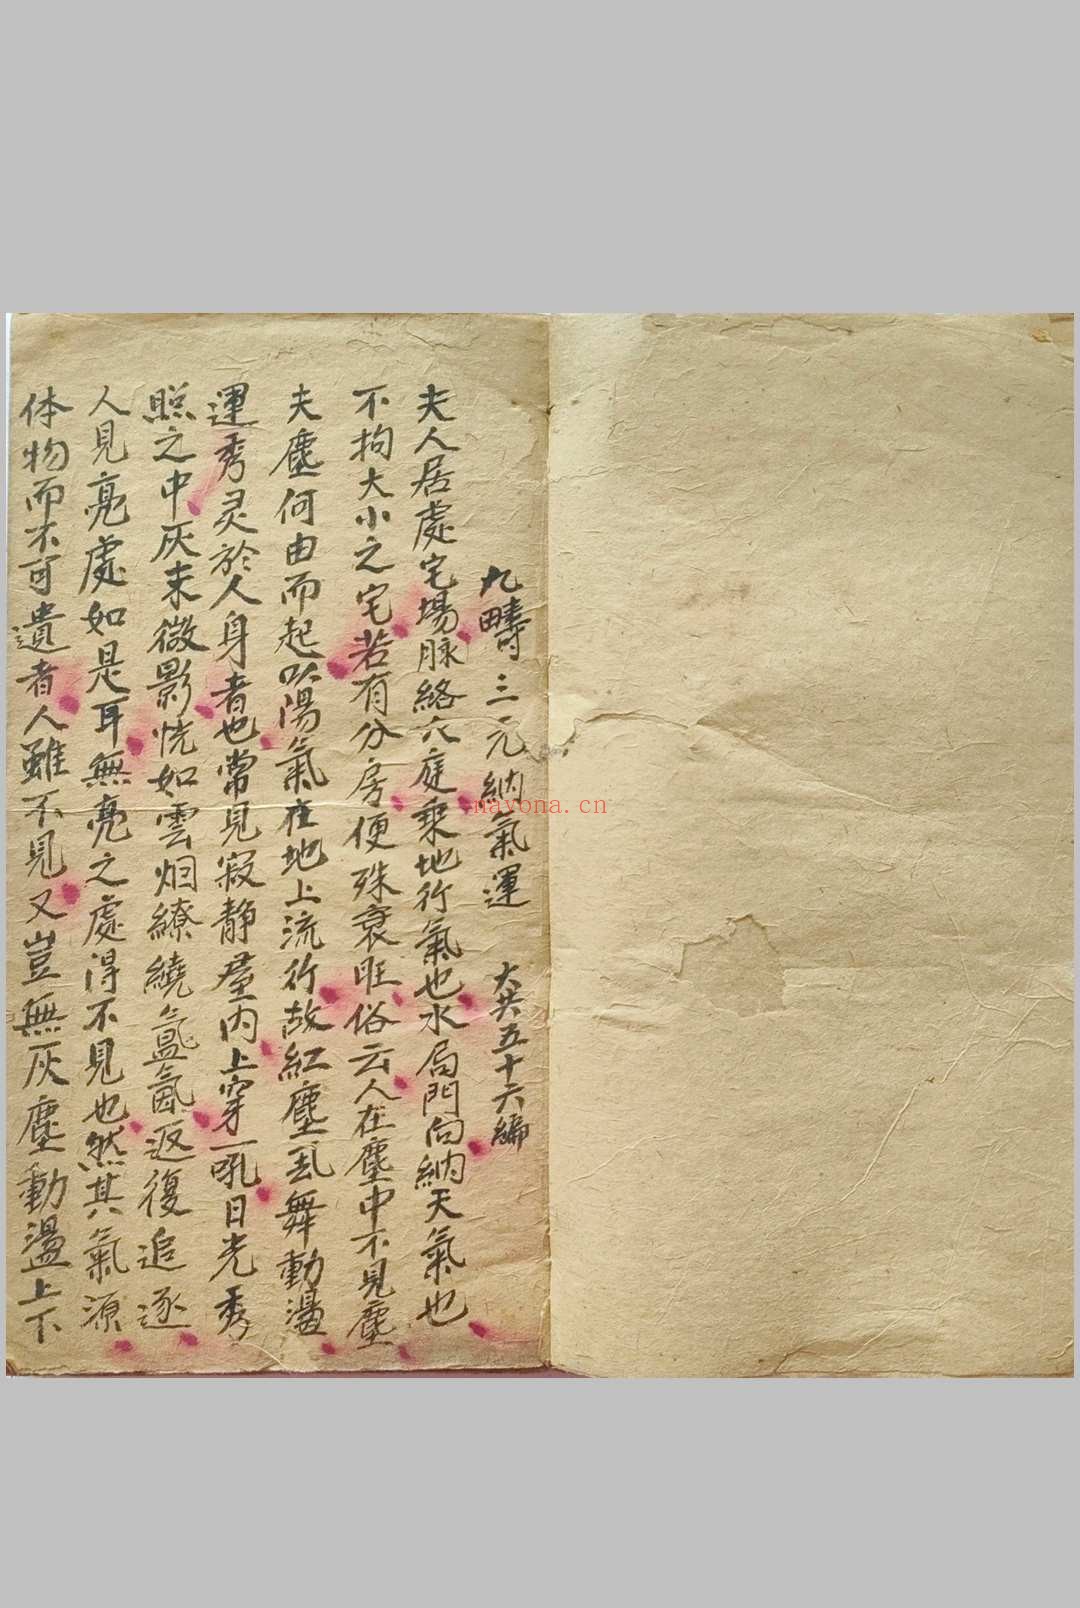 九疇三元納氣運 大共五十六編
夫人居處宅場脉絡穴庭乘地行氣也水局門向納天氣也
不拘大小之宅若有分房便殊衰旺俗云人在塵中不見塵
夫塵何由而起以陽氣在地上流行故紅塵乱舞動盪
運秀灵於人身者也常見寂靜屋內上穿一吼日光秀
照之中灰末微影恍如雲烟繚繞氳氤返復追逐
人見亮處如是耳無亮之處得不見也然其氣源
体物而不可遺者人雖不見又豈無灰塵動盪上下
nayona.cn